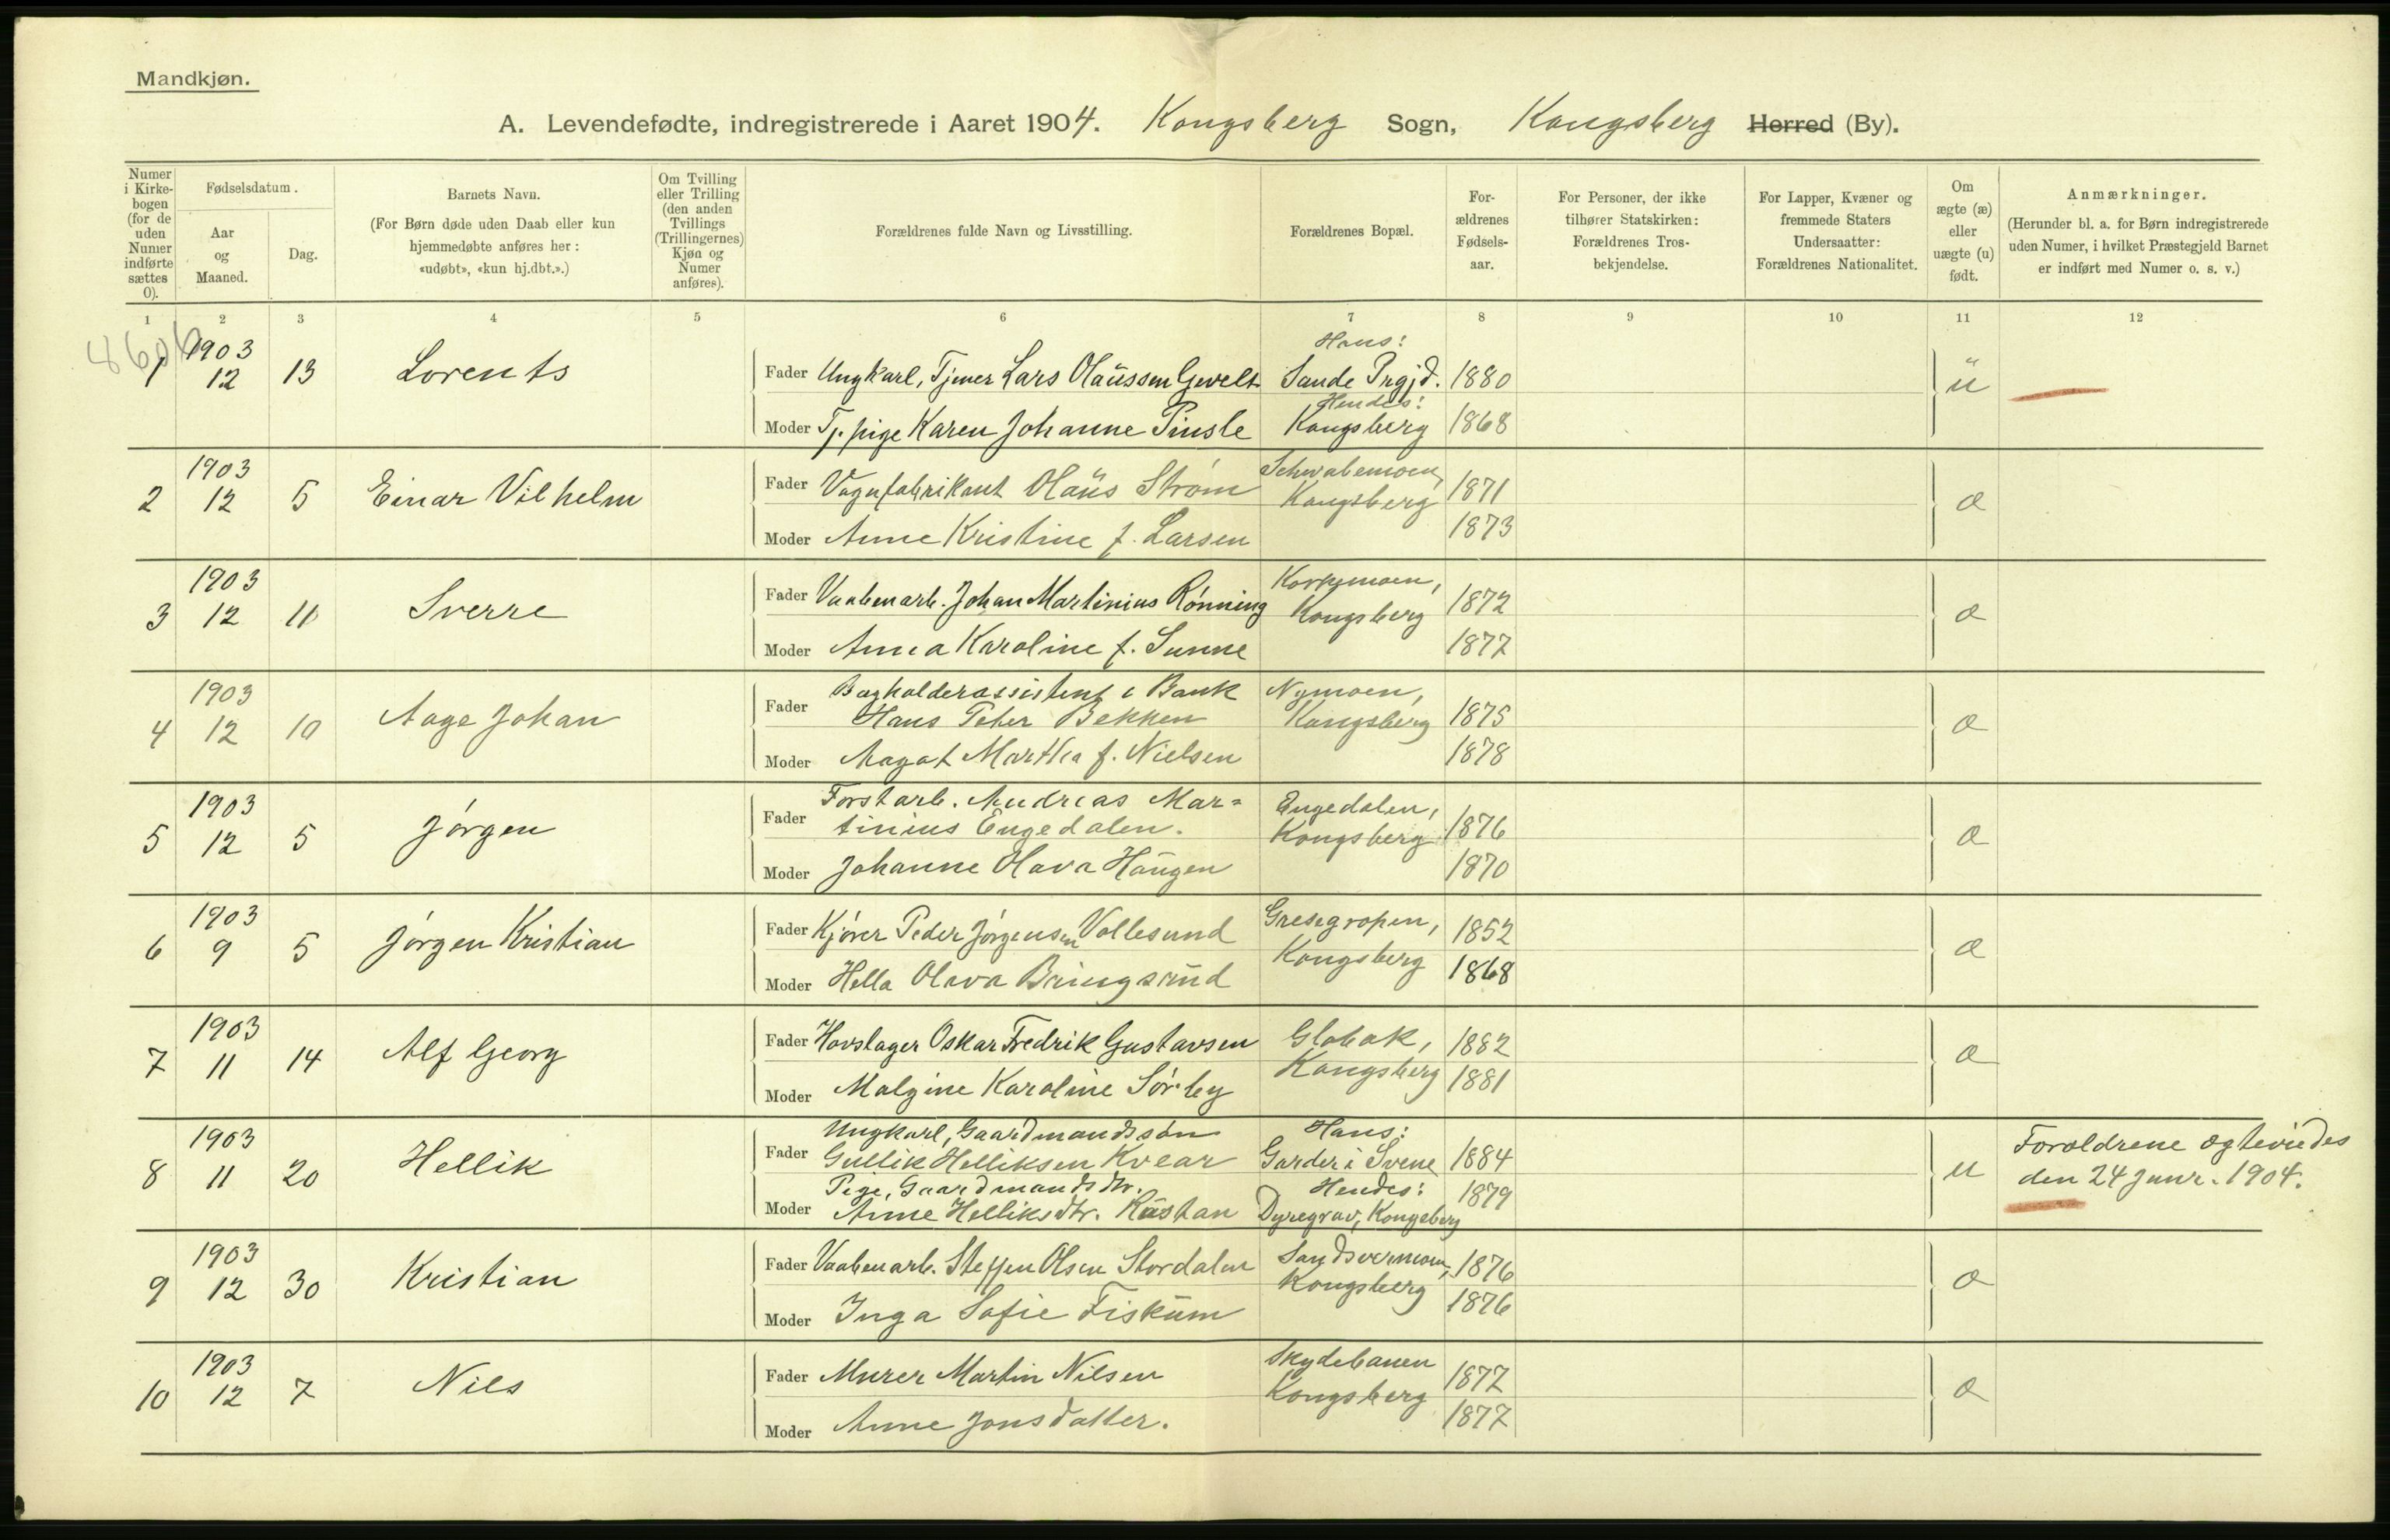 Mandkjøn.
A. Levendefødte, indregistrerede i Aaret 1904. Kongsberg Sogn, Kongsberg Herred (By).
Numer i Kirkebogen (for de uden Numer indførte sættes 0).
Fødselsdatum.
Aar og Maaned.
Dag.
Barnets Navn.
(For Børn døde uden Daab eller kun hjemmedøbte anføres her: «udøbt», «kun hj.dbt.».)
Om Tvilling eller Trilling (den anden Tvillings (Trillingernes) Kjøn og Numer anføres).
Forældrenes fulde Navn og Livsstilling.
Forældrenes Bopæl.
Forældrenes Fødselsaar.
For Personer, der ikke tilhører Statskirken: Forældrenes Trosbekjendelse.
For Lapper, Kvæner og fremmede Staters Undersaatter: Forældrenes Nationalitet.
Om ægte (æ) eller uægte (u) født.
Anmærkninger.
(Herunder bl. a. for Børn indregistrerede uden Numer, i hvilket Præstegjeld Barnet er indført med Numer o. s. v.)
1 2 3 4 5 6 7 8 9 10 11 12
1 1903 12 13 Lorents
Fader Ungkarl, Tjener Lars Olaüssen Gevelt Hans: Sande Prgjd. 1880 ü
Moder Tj. pige Karen Johanne Pinsle Hendes: Kongsberg 1868
2 1903 12 5 Einar Vilhelm
Fader Vognfabrikant Olaüs Strøm Schwabemoen, Kongsberg 1871 æ
Moder Anne Kristine f. Larsen 1873
3 1903 12 11 Sverre
Fader Vaabenarb. Johan Martinius Rönning Kongsberg 1872 æ
Moder Anna Karoline f. Sunne 1877
4 1903 12 10 Aage Johan
Fader Bogholderassistent i Bank
Hans Peter Bekken Nymoen, Kongsberg 1875 æ
Moder Magat Marthea f. Nielsen 1878
5 1903 12 5 Jörgen
Fader Forstarb. Andreas Mar=
tinius Engedalen. Engedalen, Kongsberg 1876 æ
Moder Johanne Olava Haügen 1870
6 1903 9 5 Jörgen Kristian
Fader Kjörer Peder Jörgensen Vollesund Gresegropen, Kongsberg 1852 æ
Moder Hella Olava Bringsrüd 1868
7 1903 11 14 Alf Georg
Fader Hovslager Oskar Fredrik Gustavsen Glabak, Kongsberg 1882 æ
Moder Malgine Karoline Sörby 1881
8 1903 11 20 Hellik
Fader Ungkarl, Gaardmandssön
Gullik Helliksen Kvear Hans: Garder i Svene 1884 u
Moder Pige, Gaardmandsdtr.
Anne Helliksdtr. Rüstan Hendes: Dyregrav, Kongsberg 1879
Foræoldrene ægteviedes
den 24 Janr. 1904.
9 1903 12 30 Kristian
Fader Vaabenarb. Steffen Olsen Stordalen Sandsværmoen, Kongsberg 1876 æ
Moder Inga Sofie Fiskum 1876
10 1903 12 7 Nils
Fader Murer Martin Nilsen Skydebanen Kongsberg 1877 æ
Moder Anne Jonsdatter. 1877